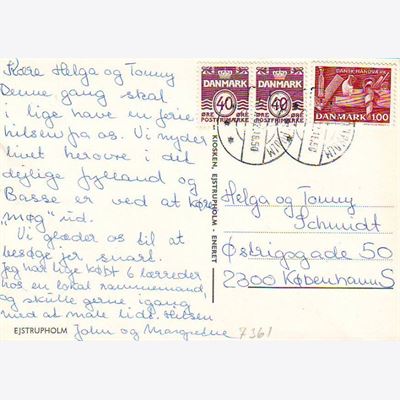 Kære Helga og Tonny
Denne gang skal
I lige have en ferie
hilsen fra os. Vi nyder
livet herovre i det
dejlige jylland og
Basse er ved at køre
"møg" ud.
Vi glæder os til at
besøge jer snart.
Jeg har lige købt 6 lærreder
hos en lokal rammemand,
og skulle gerne igang
med at male lidt. Hilsen
John og Margrethe
EJSTRUPHOLM
7361
KIOSKEN, EJSTRUPHOLM - ENERET
DANMARK
40
ØRE ØRE
POSTFRIMÆRKE
DANMARK
40
ØRE ØRE
POSTFRIMÆRKE
DANSK HÅNDVÆRK
DANMARK 100
Helga og Tonny
Schmidt
Østrigsgade 50
2300 København S